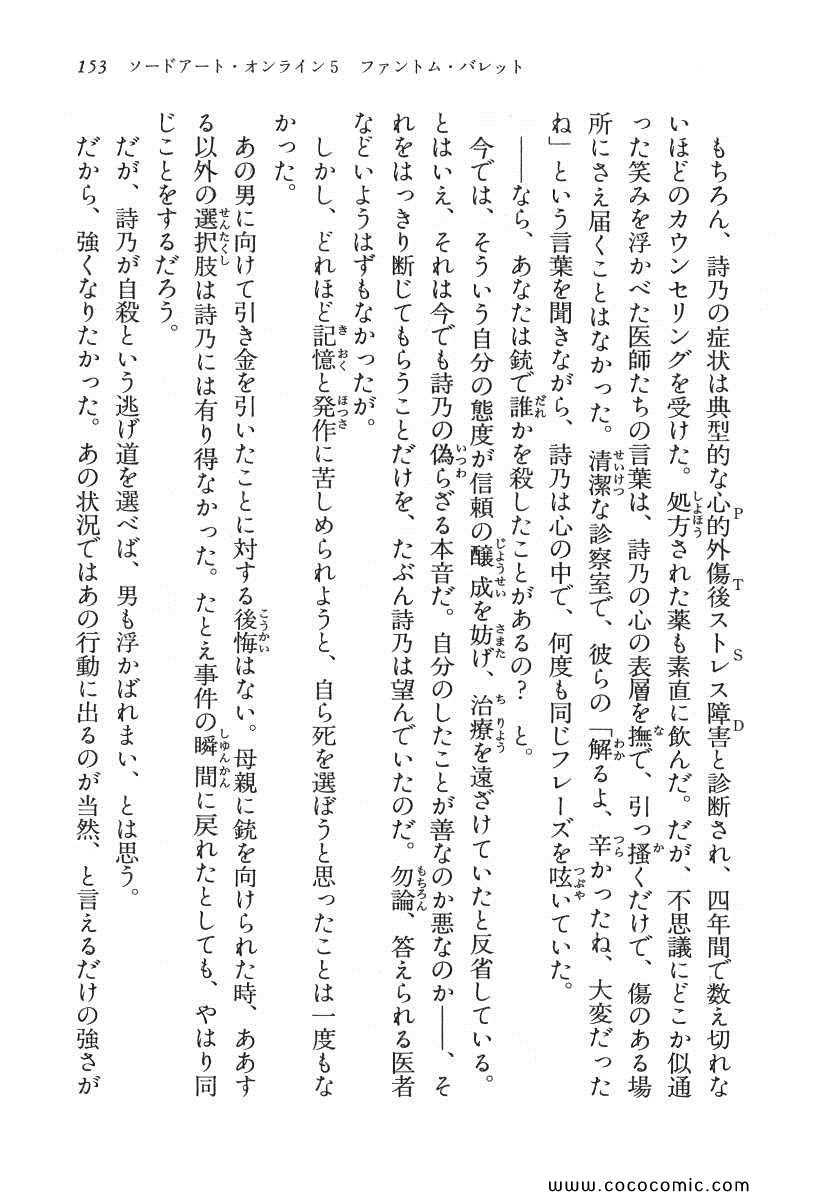 153 ソードアート・オンライン5 ファントム・バレット
もちろん、詩乃の症状は典型的な心的外傷後ストレス障害と診断され、四年間で数え切れな
いほどのカウンセリングを受けた。処方された薬も素直に飲んだ。だが、不思議にどこか似通
った笑みを浮かべた医師たちの言葉は、詩乃の心の表層を撫で、引っ掻くだけで、傷のある場
所にさえ届くことはなかった。清潔な診察室で、彼らの「解るよ、辛かったね、大変だった
ね」という言葉を聞きながら、詩乃は心の中で、何度も同じフレーズを呟いていた。
――なら、あなたは銃で誰かを殺したことがあるの? と。
今では、そういう自分の態度が信頼の醸成を妨げ、治療を遠ざけていたと反省している。
とはいえ、それは今でも詩乃の偽らざる本音だ。自分のしたことが善なのか悪なのか――、そ
れをはっきり断じてもらうことだけを、たぶん詩乃は望んでいたのだ。勿論、答えられる医者
などいようはずもなかったが。
しかし、どれほど記憶と発作に苦しめられようと、自ら死を選ぼうと思ったことは一度もな
かった。
あの男に向けて引き金を引いたことに対する後悔はない。母親に銃を向けられた時、ああす
る以外の選択肢は詩乃には有り得なかった。たとえ事件の瞬間に戻れたとしても、やはり同
じことをするだろう。
だが、詩乃が自殺という逃げ道を選べば、男も浮かばれまい、とは思う。
だから、強くなりたかった。あの状況ではあの行動に出るのが当然、と言えるだけの強さが
www.cococomic.com/